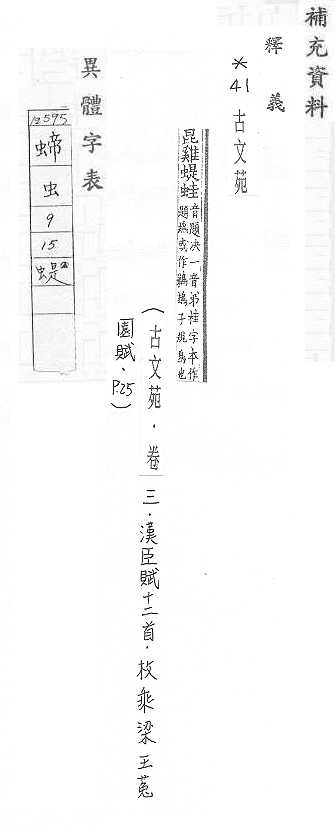 補充資料
釋義
*41 古文苑
昆雞蝭蛙
音題决一音弟桂字本作
題鴂或作鷤鴂子規鳥也
(古文苑.卷三.漢臣賦十二首.枚乘梁王菟
園賦.P.25)
異體字表
12595
䗖
虫
9
15
蝭